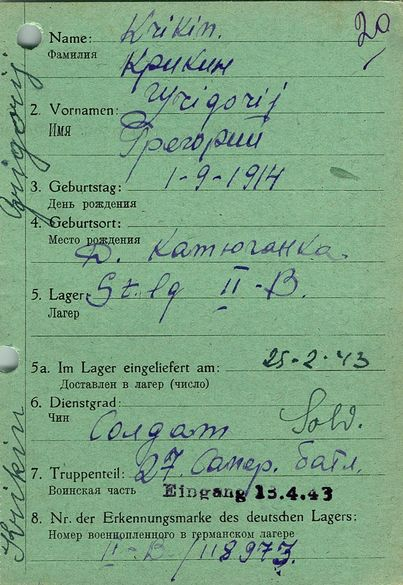 2a
Name: Krikin.
Фамилия Крикин
2. Vornamen: Grigorij
Имя Грегорий
3. Geburtstag: 1-9-1914
День рождения
4. Geburtsort:
Место рождения
Д. Катюганка.
5. Lager: St. lg II-B.
Лагер
5a. Im Lager eingeliefert am: 25-2-43
Доставлен в лагер (число)
6. Dienstgrad: Sold.
Чин Солдат
7. Truppenteil: 27 Сапер. батл.
Воинская часть Eingang 13.4.43
8. Nr. der Erkennungsmarke des deutschen Lagers:
Номер военнопленного в германском лагере
II-B/118973.
Grigorij
Krikin